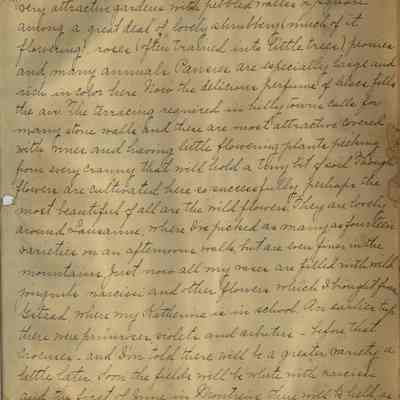 very attractive gardens with pebbled walks or square
among a great deal of lovely shrubbery (much of it
flowering), roses (often trained into little trees) peonies
and many annuals. Pansies are especially large and
rich in color here. Now the delicious perfume of lilacs fills
the air. The terracing required in hilly towns calls for
many stone walls and these are most attractive covered
with vines and having little flowering plants peeking
from every cranny that will hold a tiny bit of soil. Though
flowers are cultivated here so successfully, perhaps the
most beautiful of all are the wild flowers. They are lovely
around Lausanne, where I've picked as many as fourteen
varieties on an afternoon walk, but are even finer in the
mountains. Just now all my vases are filled with wild
jonquils narcissi and other flowers which I brought from
Gstaad where my Katherine is in school. An earlier trip
there were primroses, violets and arbutus - before that
crocuses - and I'm told there will be a greater variety a
little later. Soon the fields will be white with narcissi
and the first of June in Montreux they will hold a